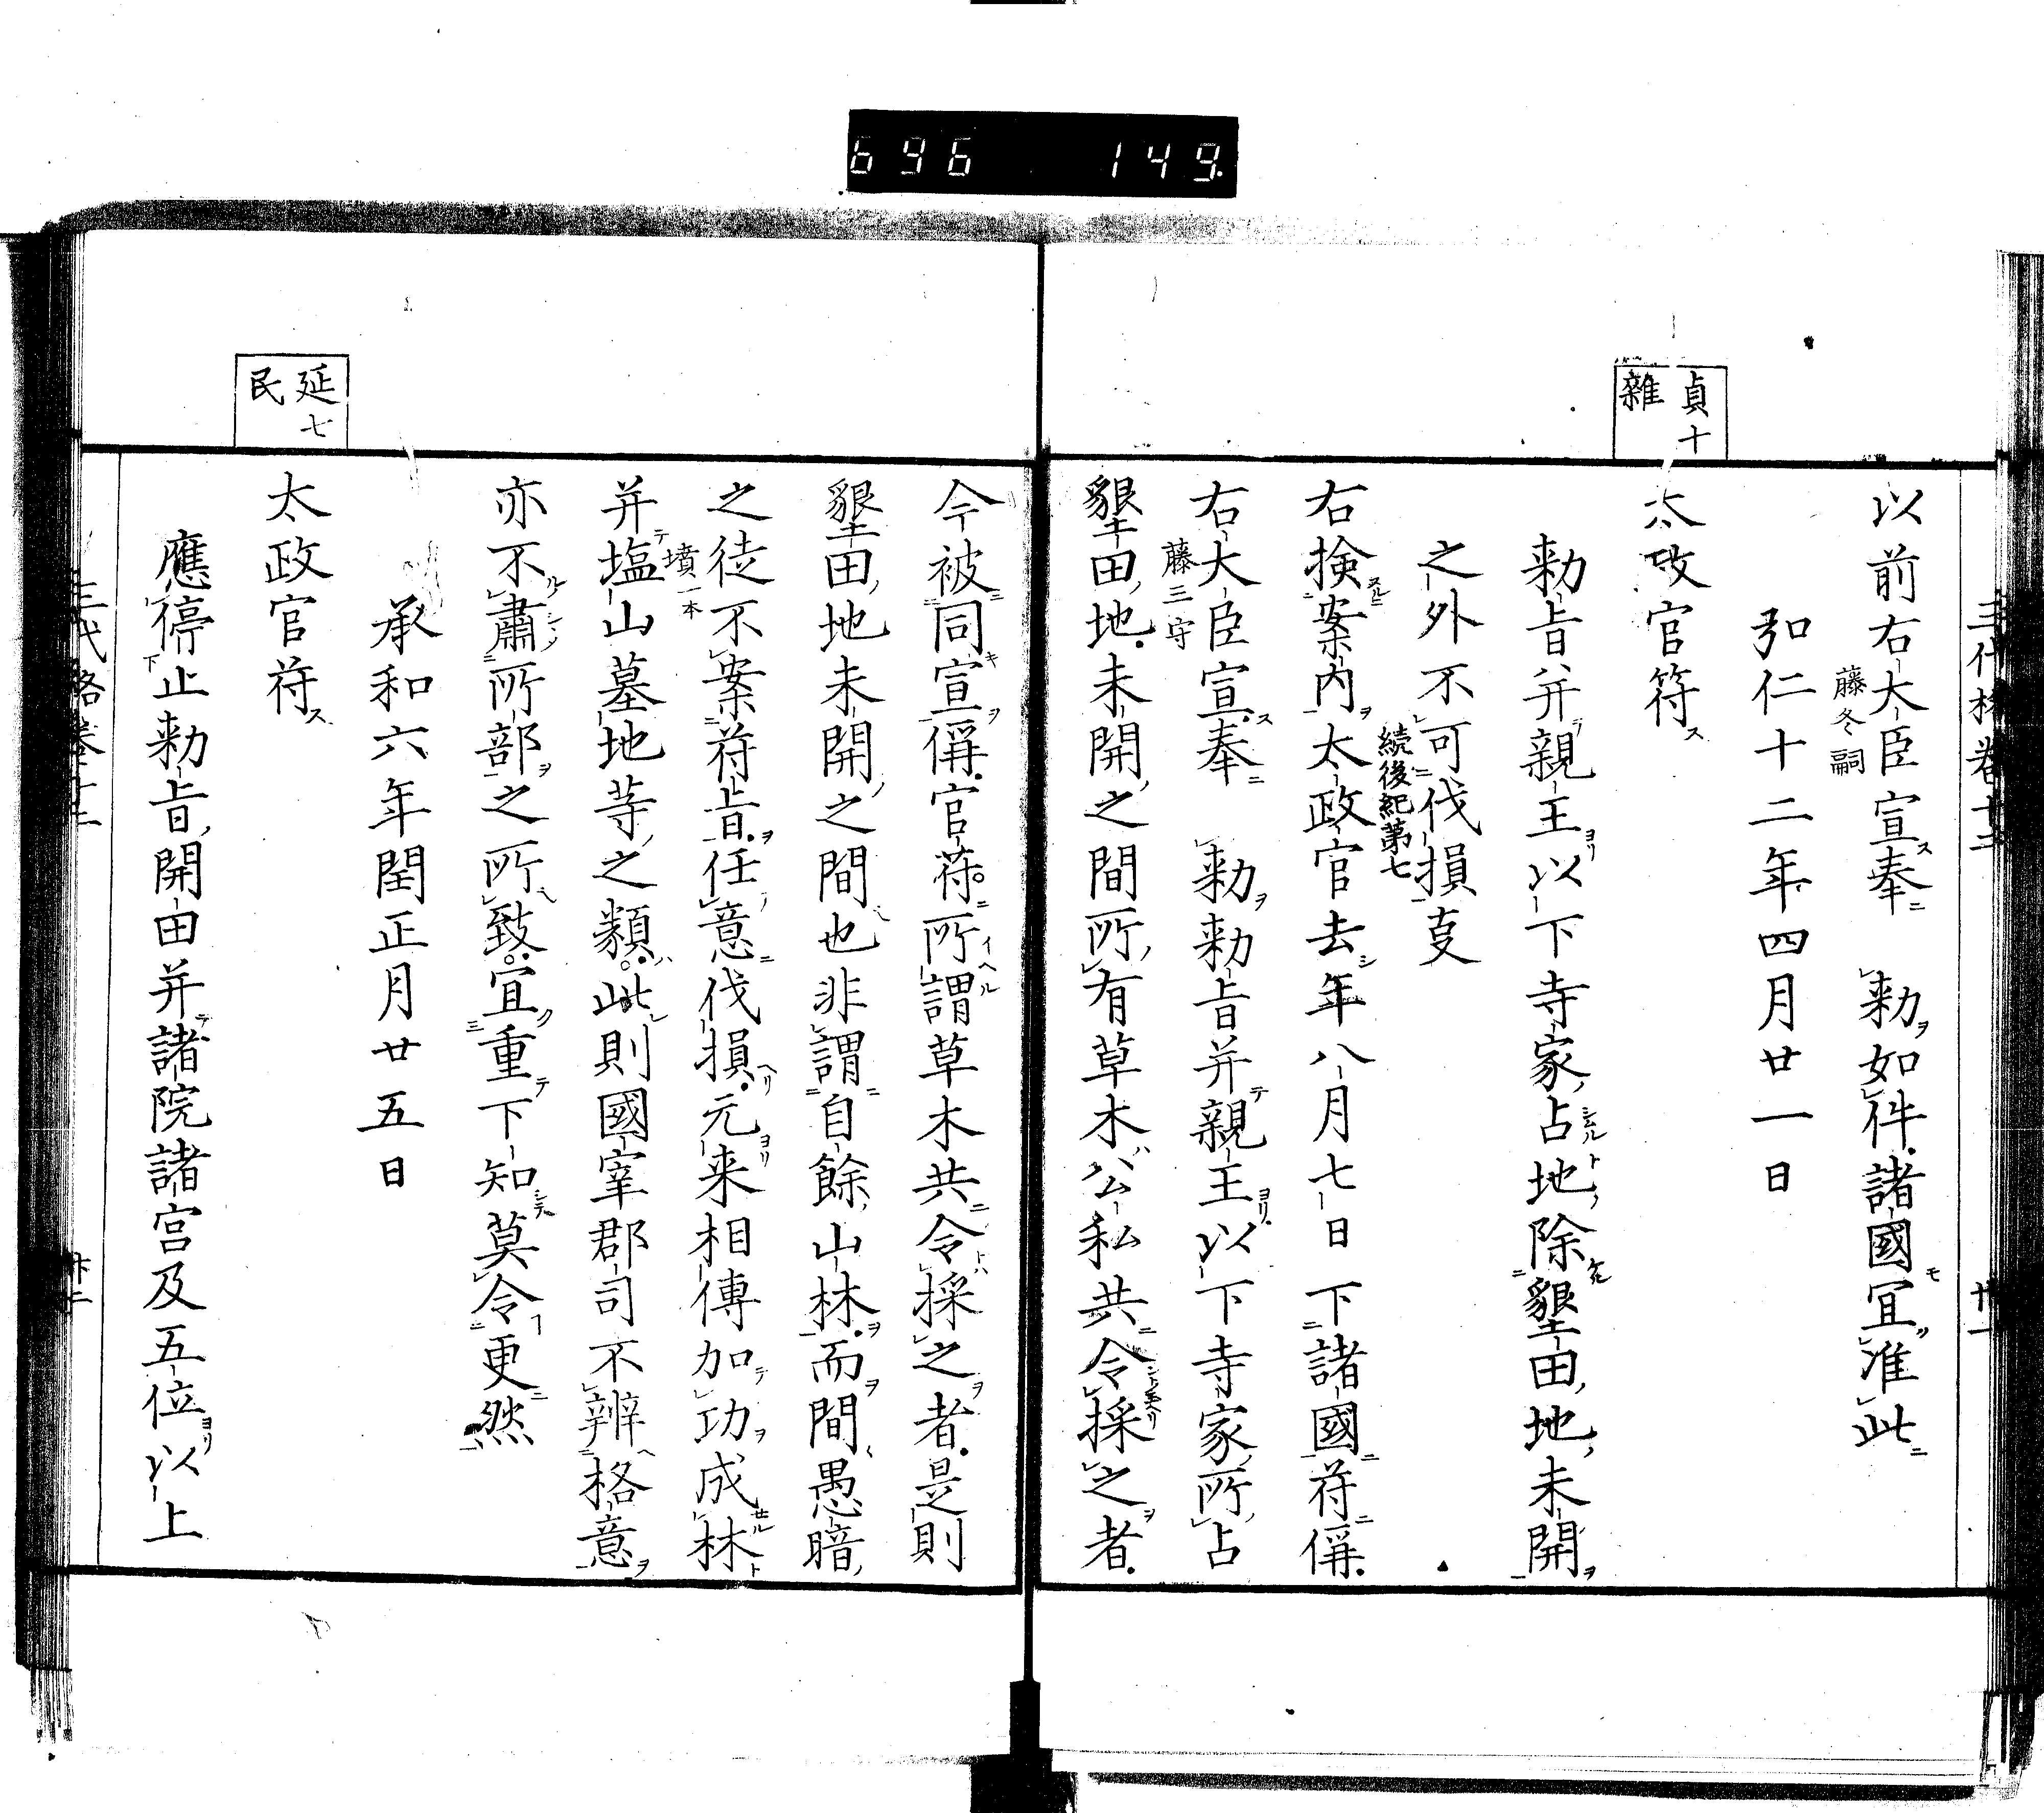 696 149
三代格卷十二 廿一
以前右大臣宣奉 勅如件諸國冝准此
藤冬嗣
弘仁十二年四月廿一日
貞十
雜
太政官符
勅旨并親王以下寺家占地除墾田地未開
之外不可伐損叓
續後紀第七
右撿案内太政官去年八月七日下諸國符偁
右大臣宣奉 勅勅旨并親王以下寺家所占
藤三守
墾田地未開之間所有草木公私共令採之者
今被同宣偁官符所謂草木共令採之者是則
墾田地未開之間也非謂自餘山林而間愚暗
之徒不案符旨任意伐損元来相傳加功成林
并塩山墓地等之類此則國宰郡司不辨格意
墳一本
亦不肅所部之所致宜重下知莫令更然
承和六年閏正月廿五日
延七
民
太政官符
應停止勅旨開田并諸院諸宮及五位以上
三代格卷十二 廿二